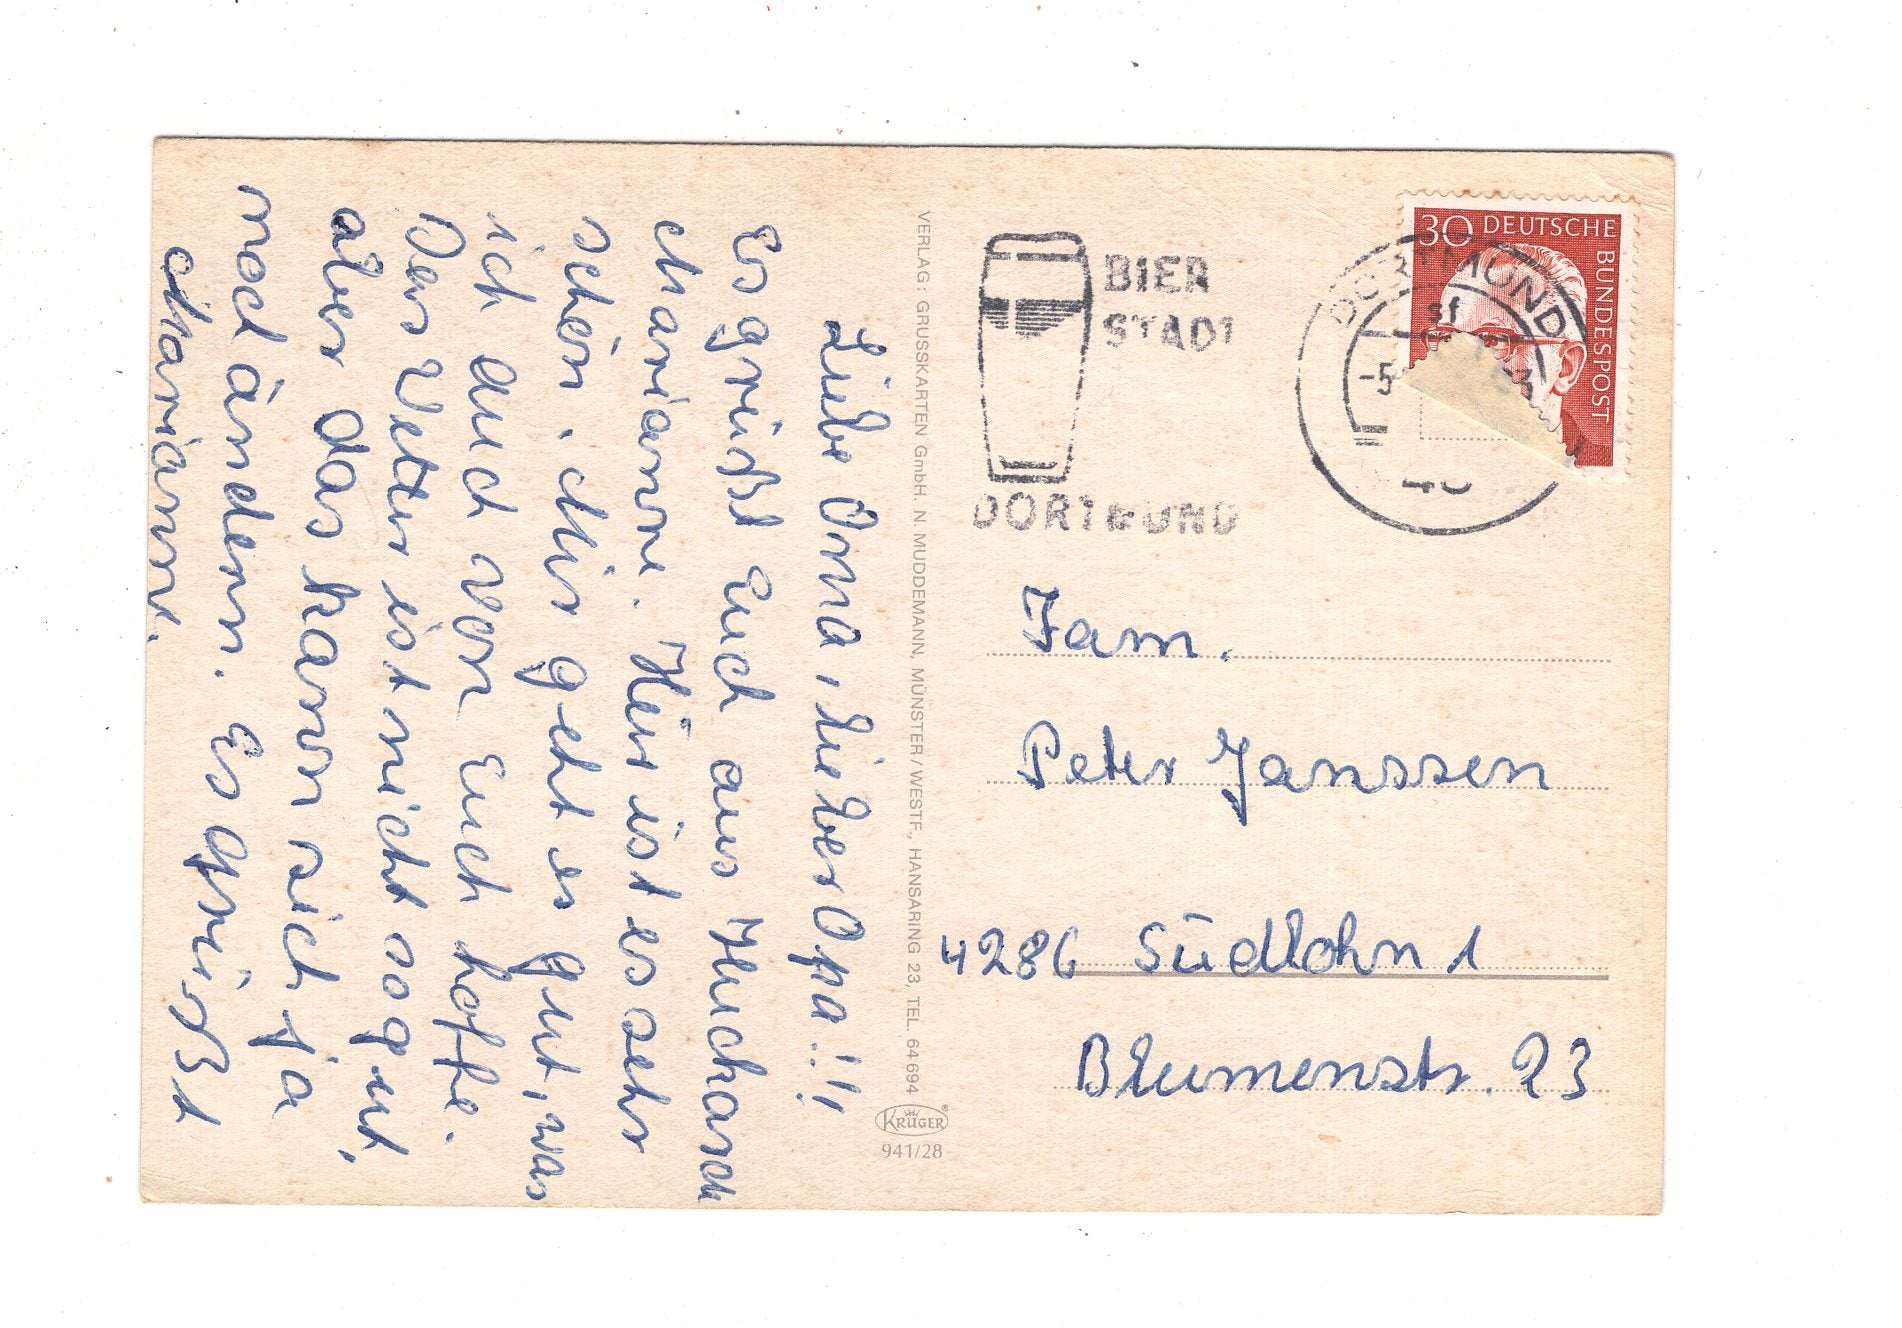 Liebe Oma, lieber Opa!!!
Es grüßt Euch aus Huckarde
Marianne. Hier ist es sehr
schön. Mir geht es gut, was
ich auch von Euch hoffe.
Das Wetter ist nicht so gut,
aber das kann sich ja
noch ändern. Es grüßt
Marianne.
VERLAG: GRUSSKARTEN GmbH. N. MUDDEMANN, MÜNSTER/WESTF., HANSARING 23, TEL. 64694
KRÜGER®
941/28
BIER
STADT
DORTMUND
DORTMUND
sf
-5
30 DEUTSCHE BUNDESPOST
Fam.
Peter Janssen
4286 Südlohn 1
Blumenstr. 23